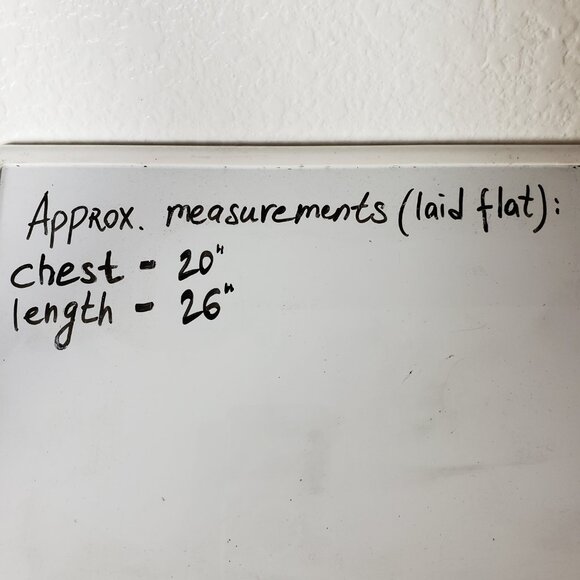 Approx. measurements (laid flat):
chest - 20"
length - 26"